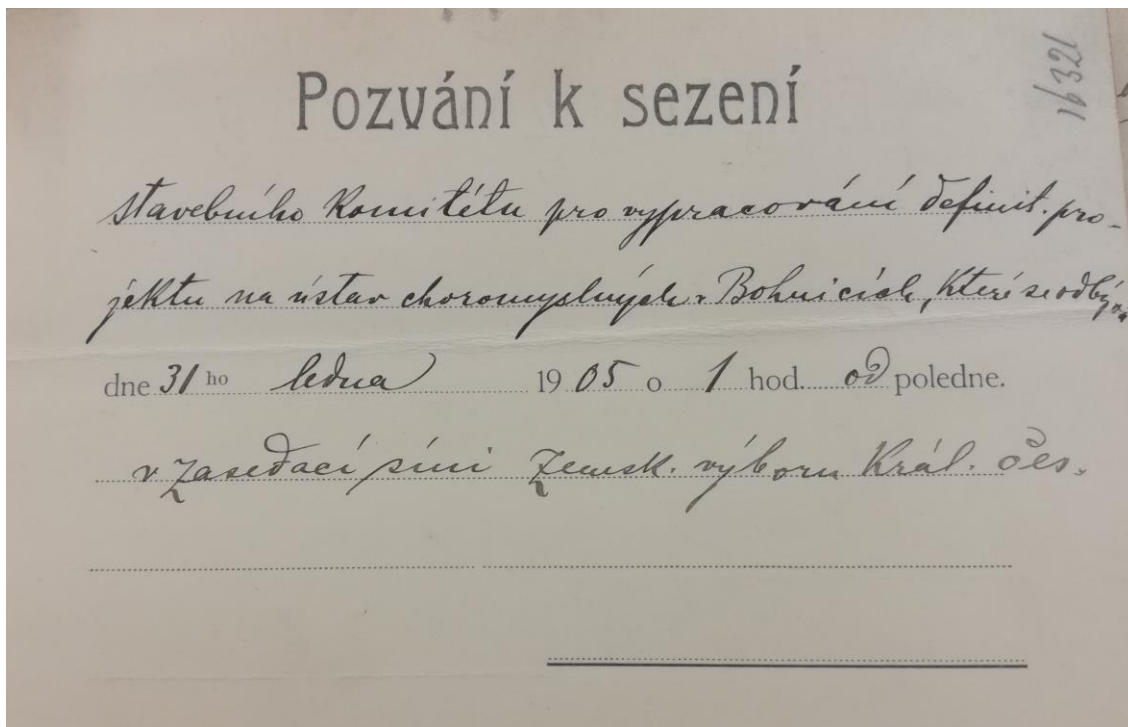 Pozvání k sezení
16321
stavebního Komitétu pro vypracování definit. pro-
jektu na ústav choromyslných v Bohnicích, které se odbýva
dne 31 ho ledna 1905 o 1 hod. od poledne.
v zasedací síni Zemsk. výboru Král. čes.